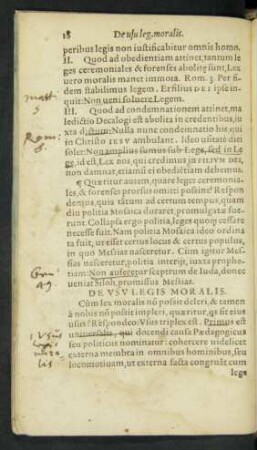 18 De usu leg. moralis.
peribus legis non iustificabitur omnis homo.
II. Quod ad obedientiam attinet, tantum leges ceremoniales & forenses abolitę sunt, Lex
uero moralis manet immota. Rom. 3. Per fidem stabilimus legem. Et filius DEI ipse in
quit: Non ueni soluere Legem.
III. Quod ad condemnationem attinet, maledictio Decalogi est abolita in credentibus, iuxta dictum: Nulla nunc condemnatio his, qui
in Christo IESV ambulant. Ideo usitatè dici
solet: Non amplius sumus sub Lege, sed in Lege, id est, Lex nos, qui credimus in FILIVM DEI,
non damnat, etiamsi ei obedientiam debemus.
¶ Quæritur autem, quare leges ceremoniales, & forenses prorsus omitti possint? Respondemus, quia tātum ad certum tempus, quam
diu politia Mosaica duraret, promulgatæ fuerunt. Collapsa ergo politia, leges quoq; cessare
necesse fuit. Nam politia Mosaica ideo ordinata fuit, ut esset certus locus & certus populus,
in quo Messias nasceretur. Cùm igitur Messias nasceretur, politia interijt, iuxta prophetiam: Non auferetur sceptrum de Iuda, donec
ueniat Siloh, promissus Messias.
DE VSV LEGIS MORALIS.
Cùm lex moralis nō possit deleri, & tamen
à nobis nō possit impleri, quæritur, quis sit eius
usus? Respondeo: Vsus triplex est. Primus est
uniuersalis, qui docendi causa Pædagogicus
seu politicus nominatur: cohercere uidelicet
externa membra in omnibus hominibus, seu
locomotiuam, ut externa facta congruant cum
lege
matt.
5
Rom:
8.
Gen:
49.
Vsus
legis
mora
lis